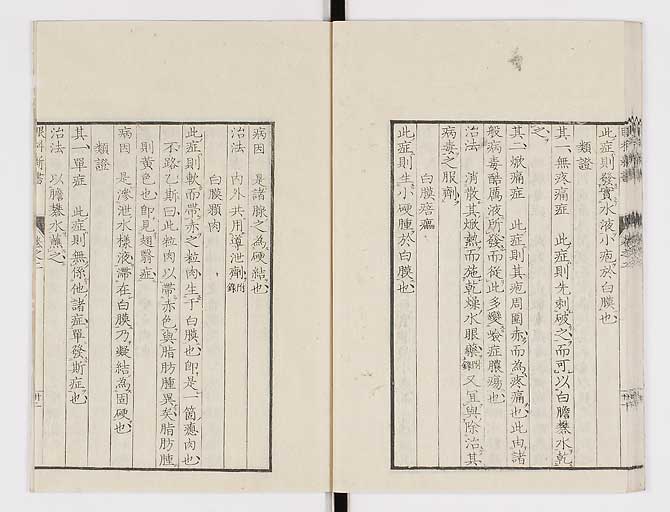 此症則發實水液小疱於白膜也
類證
其一無疼痛症 此症則先刺破之而可以白膽礬水乾
之
其二焮痛症 此症則其疱周圍赤而為疼痛也此由諸
般病毒酷厲液所發而從此多變症膿瘍也
治法 消散其焮熱而施乾燥水眼藥附錄又宜與除治其
病毒之服劑
白膜痞癟
此症則生小硬腫於白膜也
病因 是諸腺之為硬結也
治法 內外共用導泄劑附錄
白膜顆肉
此症則軟而帶赤之粒肉生于白膜也卽是一箇瘜肉也
不路乙斯曰此粒肉以帶赤色與脂肪腫異矣脂肪腫
則黃色也卽見翅翳症
病因 是滲泄水樣液滯在白膜乃凝結為固硬也
類證
其一單症 此症則無係他諸症單發斯症也
治法 以膽礬水蘸之
眼科新書 卷之二 廿一